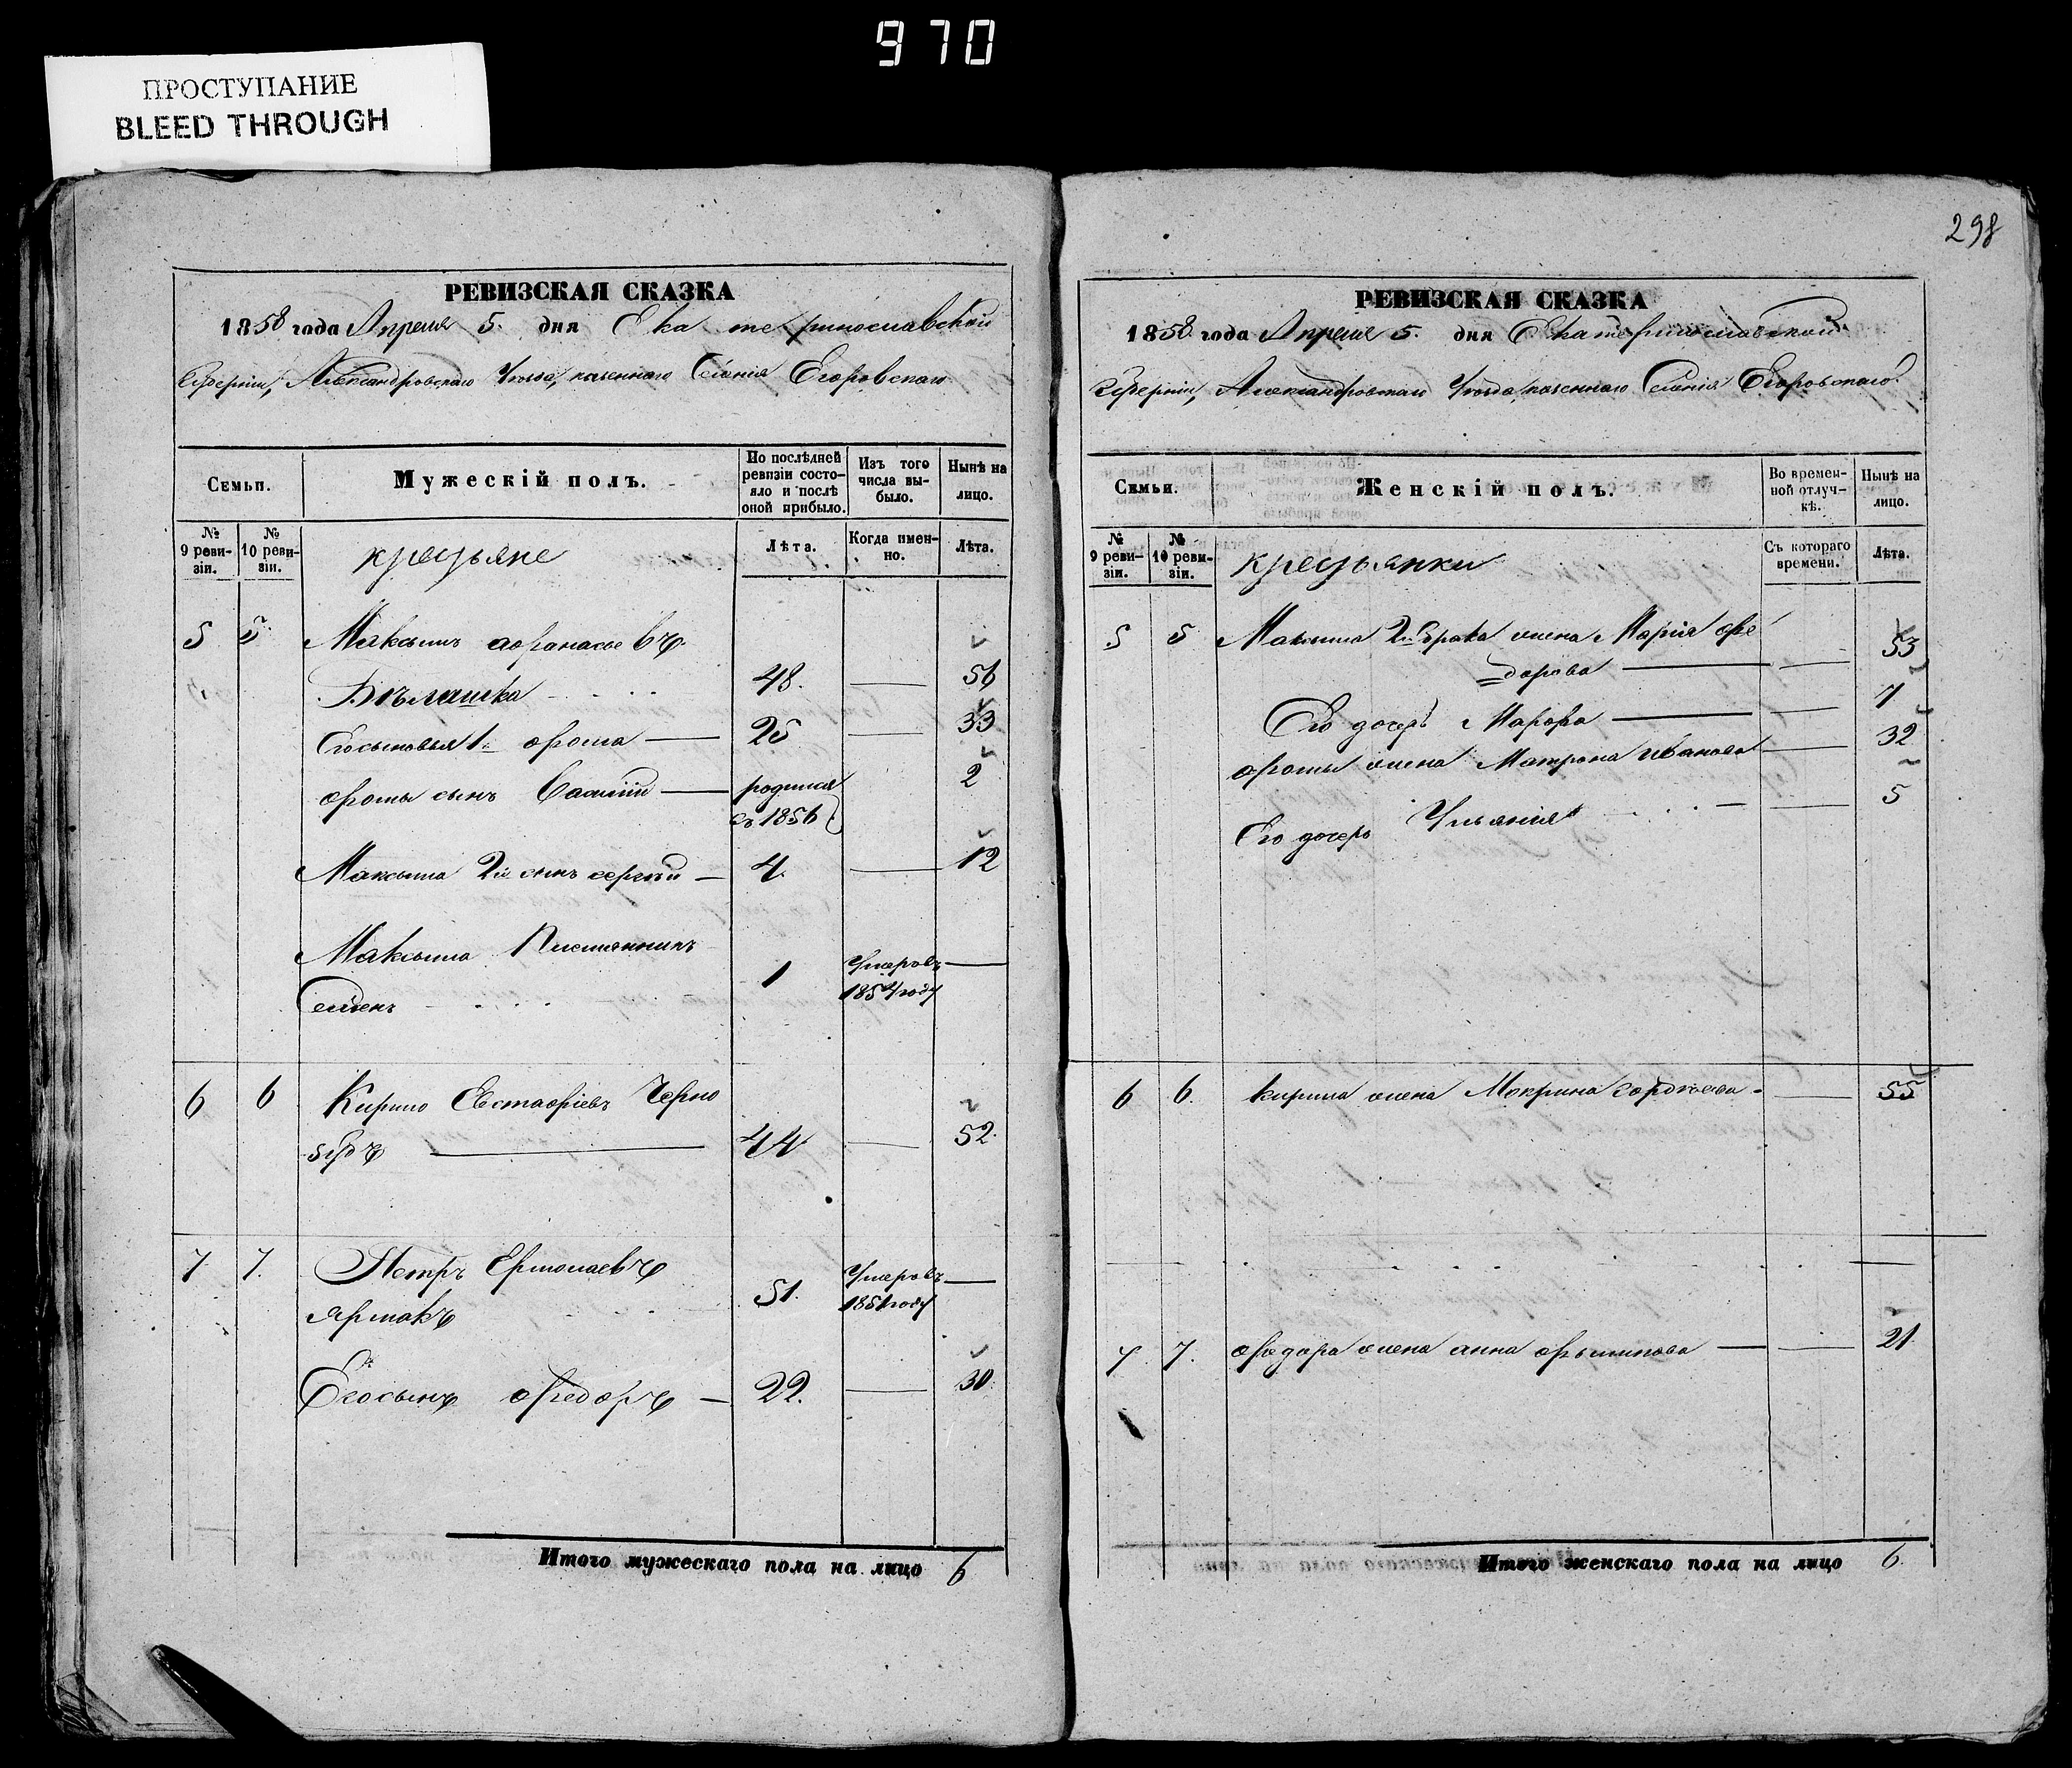 970
ПРОСТУПАНИЕ
BLEED THROUGH
РЕВИЗСКАЯ СКАЗКА
1858 года Апреля 5. дня Екатеринославской
Губерніи, Александровскаго Уезда, казеннаго Селенія Егоровскаго
Семьи.
Мужескій полъ.
По послѣдней ревизіи состояло и послѣ оной прибыло.
Изъ того числа выбыло.
Нынѣ на лицо.
№ 9 ревизіи.
№ 10 ревизіи.
крестьяне
Лѣта.
Когда именно.
Лѣта.
5 5 Максимъ афанасьевъ
Бѣлашка 48. 56
Его сыновья 1й фома 25 33
фомы сынъ Василий родился 2
съ 1856
Максима 2й сынъ сергѣй 4. 12
Максима Племянникъ
Семенъ 1 Умеръ въ
1854 году
6 6 Кирило Евстафіевъ Черно
зубъ 44 52.
7 7. Петръ Ермолаевъ
ярмакъ 51. Умеръ въ
1851 году
Его сынъ федоръ 22. 30.
Итого мужескаго пола на лицо 6
298
РЕВИЗСКАЯ СКАЗКА
1858 года Апреля 5. дня Екатеринославской
Губерніи, Александровскаго Уезда, казеннаго Селенія Егоровскаго.
Семьи.
Женскій полъ.
Во временной отлучкѣ.
Нынѣ на лицо.
№ 9 ревизіи.
№ 10 ревизіи.
крестьянки
Съ котораго времени.
Лѣта.
5 5 Максима 2го брака жена Марія фе
дорова 53
Его дочерь Марфа 7
фомы жена Матрона иванова 32
Его дочерь Ульянія 5
6 6. кирила жена Мокрина гордѣева 55
7. 7. федора жена анна филипова 21.
Итого женскаго пола на лицо 6.